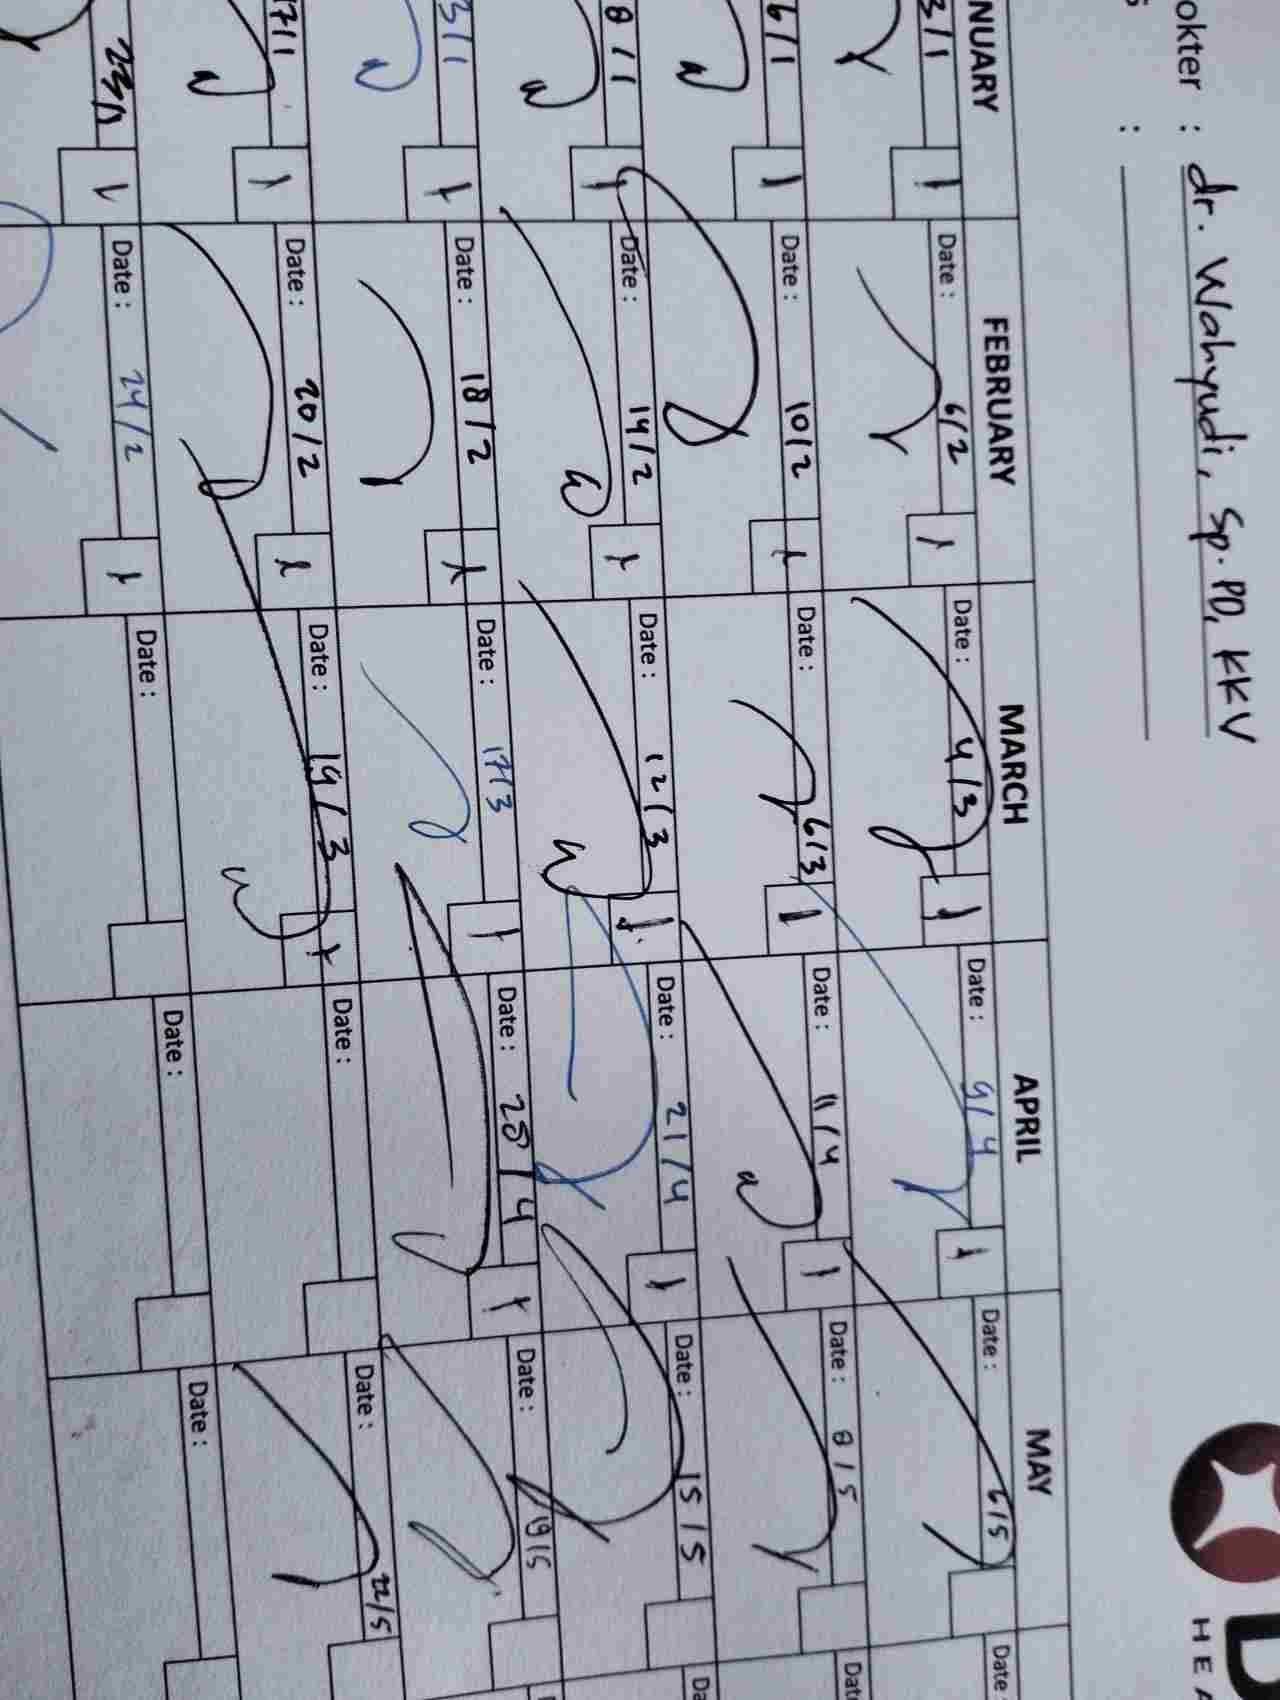 okter : dr. Wahyudi, Sp. PD, KKV
:
HEA
NUARY FEBRUARY MARCH APRIL MAY
3/1 Date : 6/2 Date : 4/3 Date : 9/4 Date : 6/5 Date :
1 1 1 1
6/1 Date : 10/2 Date : 6/3 Date : 11/4 Date : 8/5 Dat
1 1 1 1
8/1 Date : 14/2 Date : 12/3 Date : 21/4 Date : 15/5 Da
1 1 1 1
3/1 Date : 18/2 Date : 17/3 Date : 28/4 Date : 19/5
1 1 1 1
17/1 Date : 20/2 Date : 19/3 Date : Date : 22/5
1 1 1
23/1 Date : 24/2 Date : Date : Date :
1 1